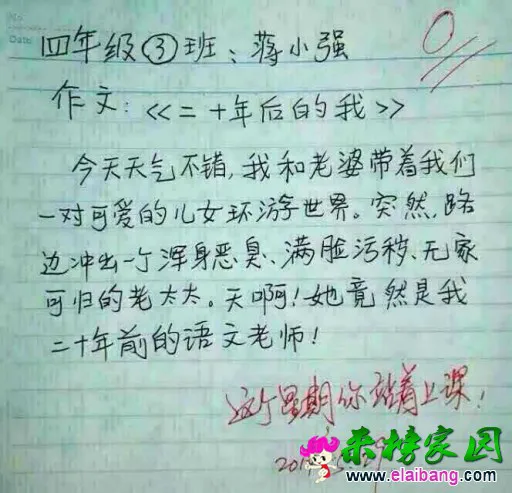 No.
Date
0
四年级③班：蒋小强
作文：《二十年后的我》
今天天气不错，我和老婆带着我们
一对可爱的儿女环游世界。突然，路
边冲出一个浑身恶臭、满脸污秽、无家
可归的老太太。天啊！她竟然是我
二十年前的语文老师！
这个星期你站着上课！
来榜家园
www.elaibang.com